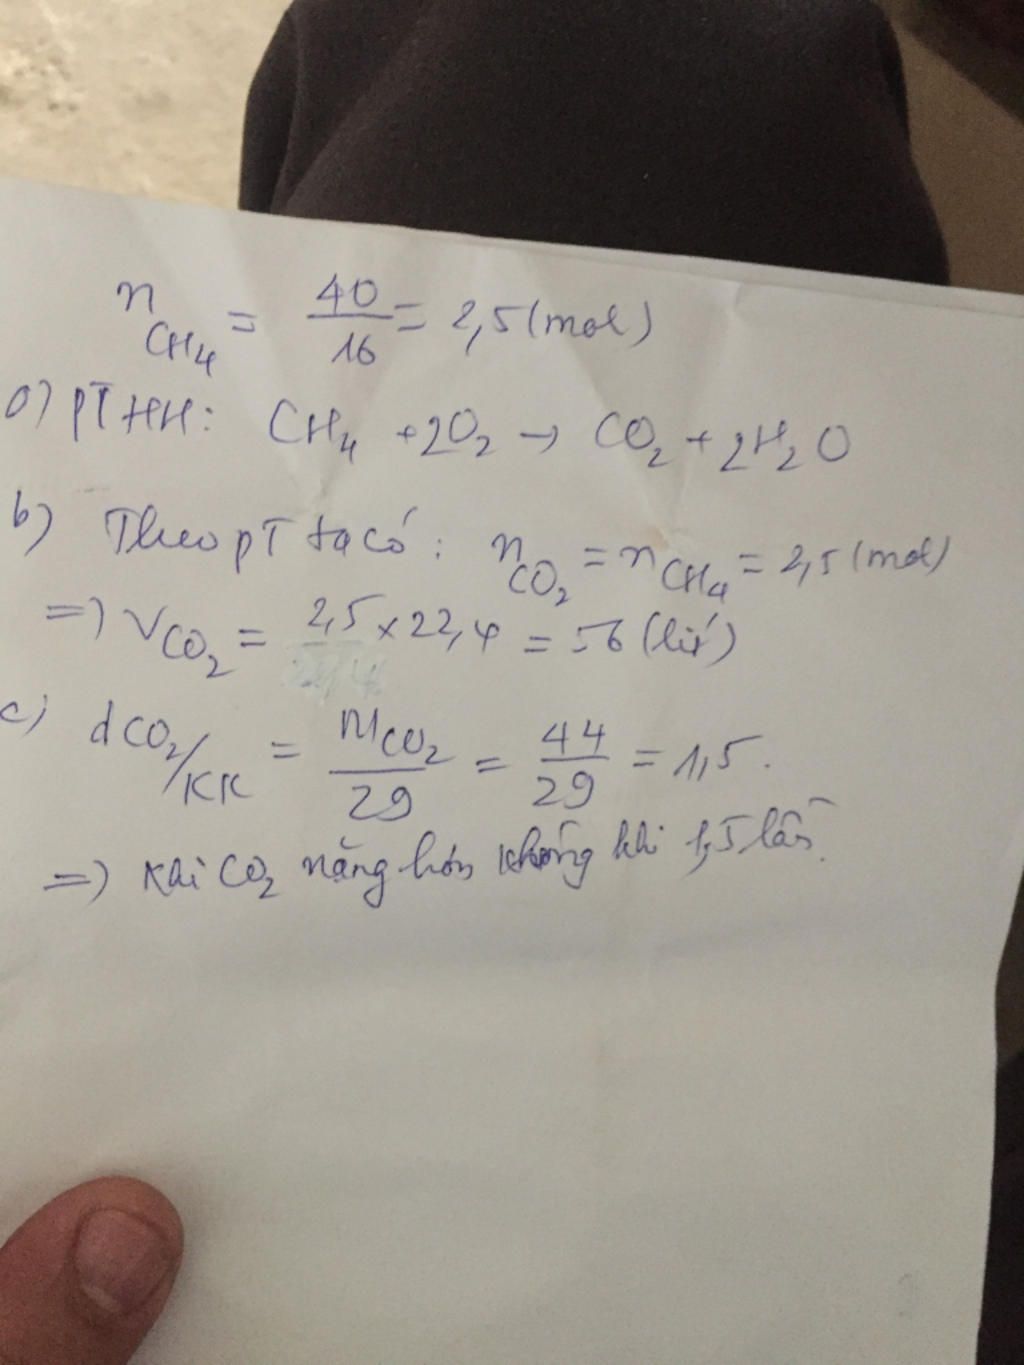 n CH4 = 40/16 = 2,5 (mol)
a) PTHH: CH4 + 2O2 → CO2 + 2H2O
b) Theo pT ta có: nCO2 = nCH4 = 2,5 (mol)
=) VCO2 = 2,5 x 22,4 = 56 (lít)
c) dCO2/KK = MCO2/29 = 44/29 = 1,5.
=) Khí CO2 nặng hơn không khí 1,5 lần.